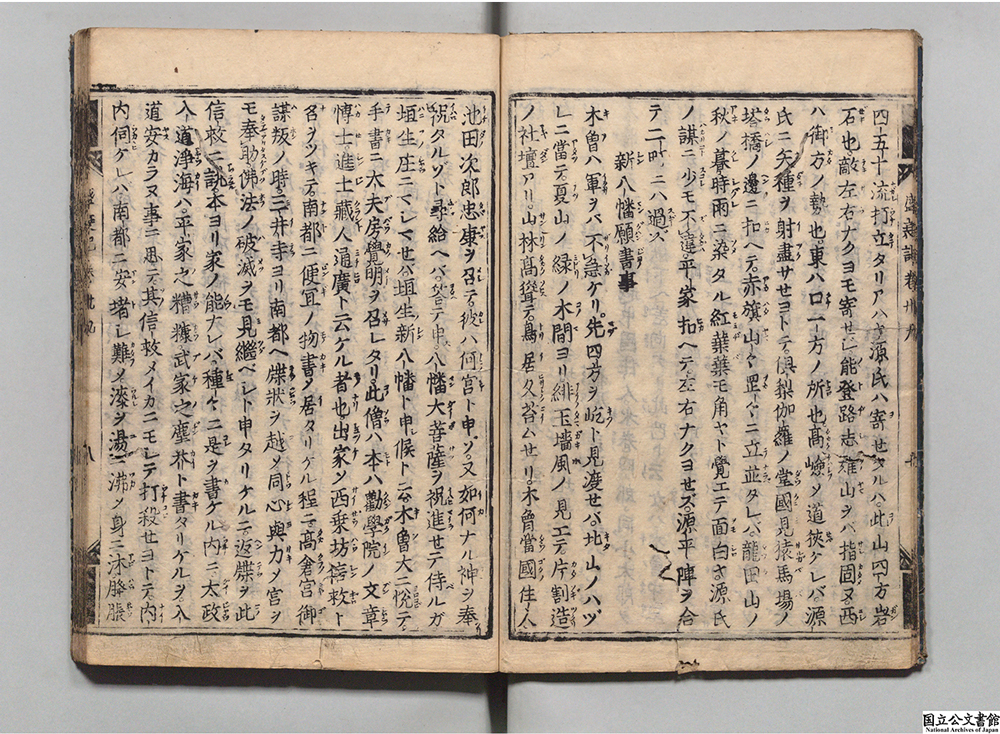 四五十流打立タリアハヤ源氏ハ寄セタルハ此山四方岩
石也敵左右ナクヨモ寄セシ能登路志雄山ヲバ指固ヌ西
ハ御方ノ勢也東ハ口一方ノ所也高嶮ソ道狭ケレバ源
氏ニ矢種ヲ射盡サセヨトテ倶梨伽羅ノ堂國見猿馬場ノ
塔橋ノ邊ニ扣ヘテ赤旗山々罡々ニ立並タレバ龍田山ノ
秋ノ暮時雨ニ染タル紅葉葉モ角ヤト覺エテ面白シ源氏
ノ謀ニ少モ不違平家扣ヘテ左右ナクヨセズ源平陣ヲ合
テ二三町ニハ過ス
新八幡願書事
木曽ハ軍ヲバ不急ケリ先四方ヲ屹ト見渡セバ北山ノハヅ
レニ當テ夏山ノ緑ノ木間ヨリ緋玉墻風ノ見エテ片割造
ノ社壇アリ山林高聳テ鳥居久苔ムセリ木曽當國住人
池田次郎忠康ヲ召テ彼ハ何宮ト申ソ又如何ナル神ヲ奉
祝タルゾト尋給ヘバ答テ申八幡大菩薩ヲ祝進セテ侍ルガ
垣生庄ニマシマセバ垣生新八幡ト申候ト云木曽大ニ悦テ
手書ニ大夫房覺明ヲ召レタリ此僧ハ本ハ勸學院ノ文章
博士進士藏人通廣ト云ケル者也出家ソ西乗坊信救ト
名ヲツキテ南都ニ便宜ノ物書ノ居タリケル程ニ高倉宮御
謀叛ノ時三井寺ヨリ南都ヘ牒状ヲ越ソ同心與力ノ宮ヲ
モ奉助佛法ノ破滅ヲモ見繼ベレト申タリケルニ返牒ヲ此
信救ニ誂本ヨリ家ノ能ナレバ種々ニ是ヲ書ケル内ニ太政
入道浄海ハ平家之糟糠武家之塵芥ト書タリケルヲ入
道安カラヌ事ニ思テ其信救メイカニモシテ打殺セヨトテ内
内伺ケレバ南都ニ安堵レ難ソ漆ヲ湯ニ沸ソ身ニ沐膀脹
国立公文書館
National Archives of Japan